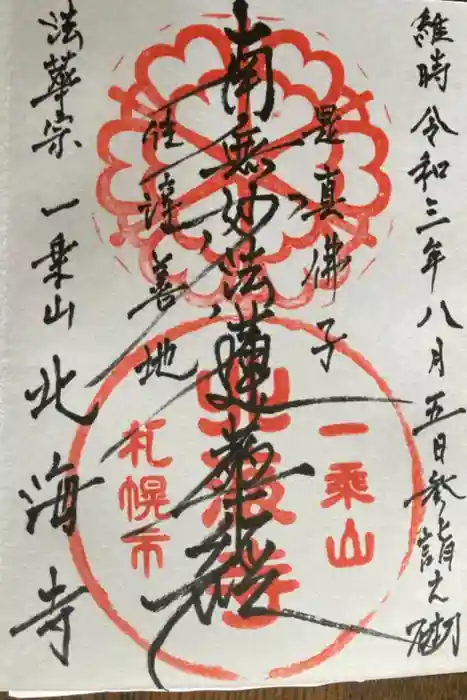 維時令和三年八月五日参詣之砌
是真佛子
南無妙法蓮華経
住淳善地
法華宗 一乗山 北海寺
一乗山
北海寺
札幌市